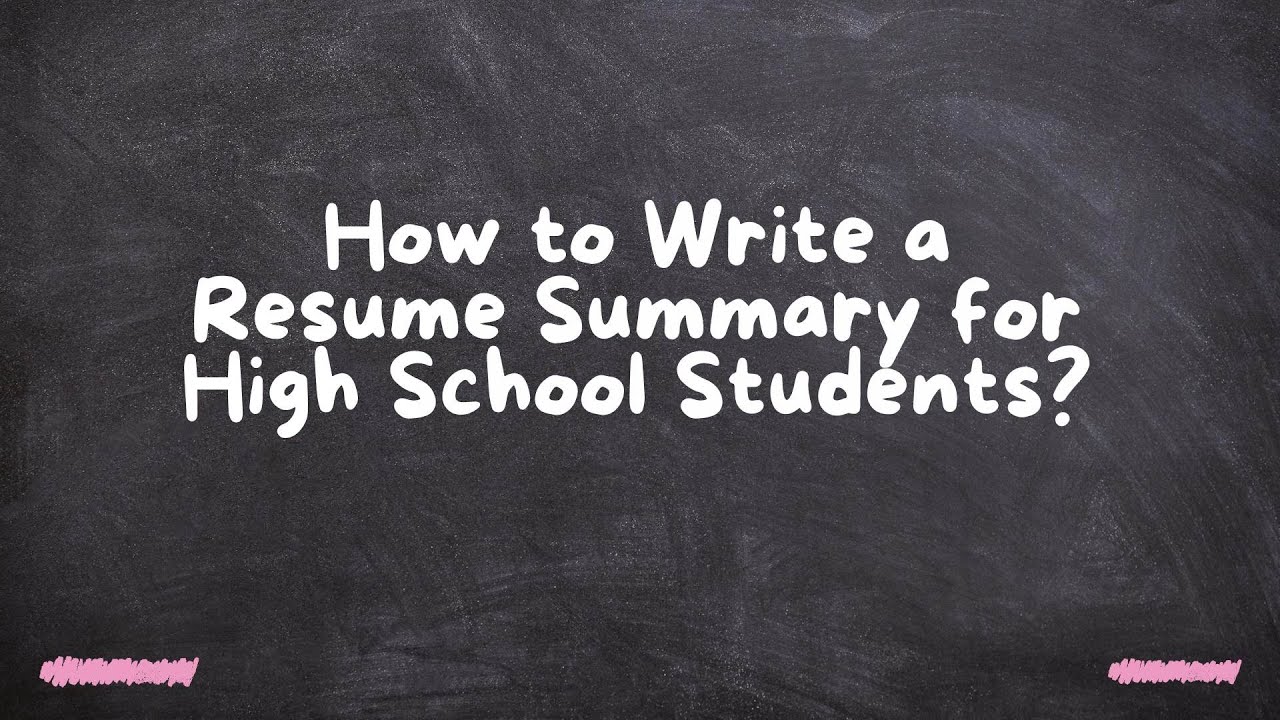 How to Write a
Resume Summary for
High School Students?